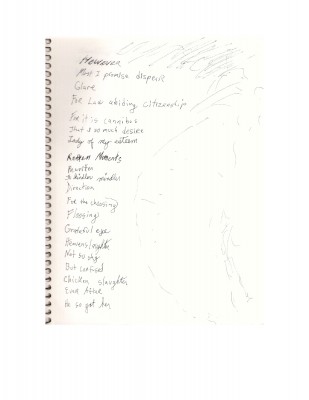 However
But I promise dispair
Glare
For Law abiding citizenship
For it is cannibus
That I so much desire
Lady of my esteem
Rotten Moments
Rewritten
To hidden mindless
Direction
For the choosing
Flossing
Grateful eye
Heavenslaughter
Not so shy
But confused
Chicken slaughter
Ever After
He so got her